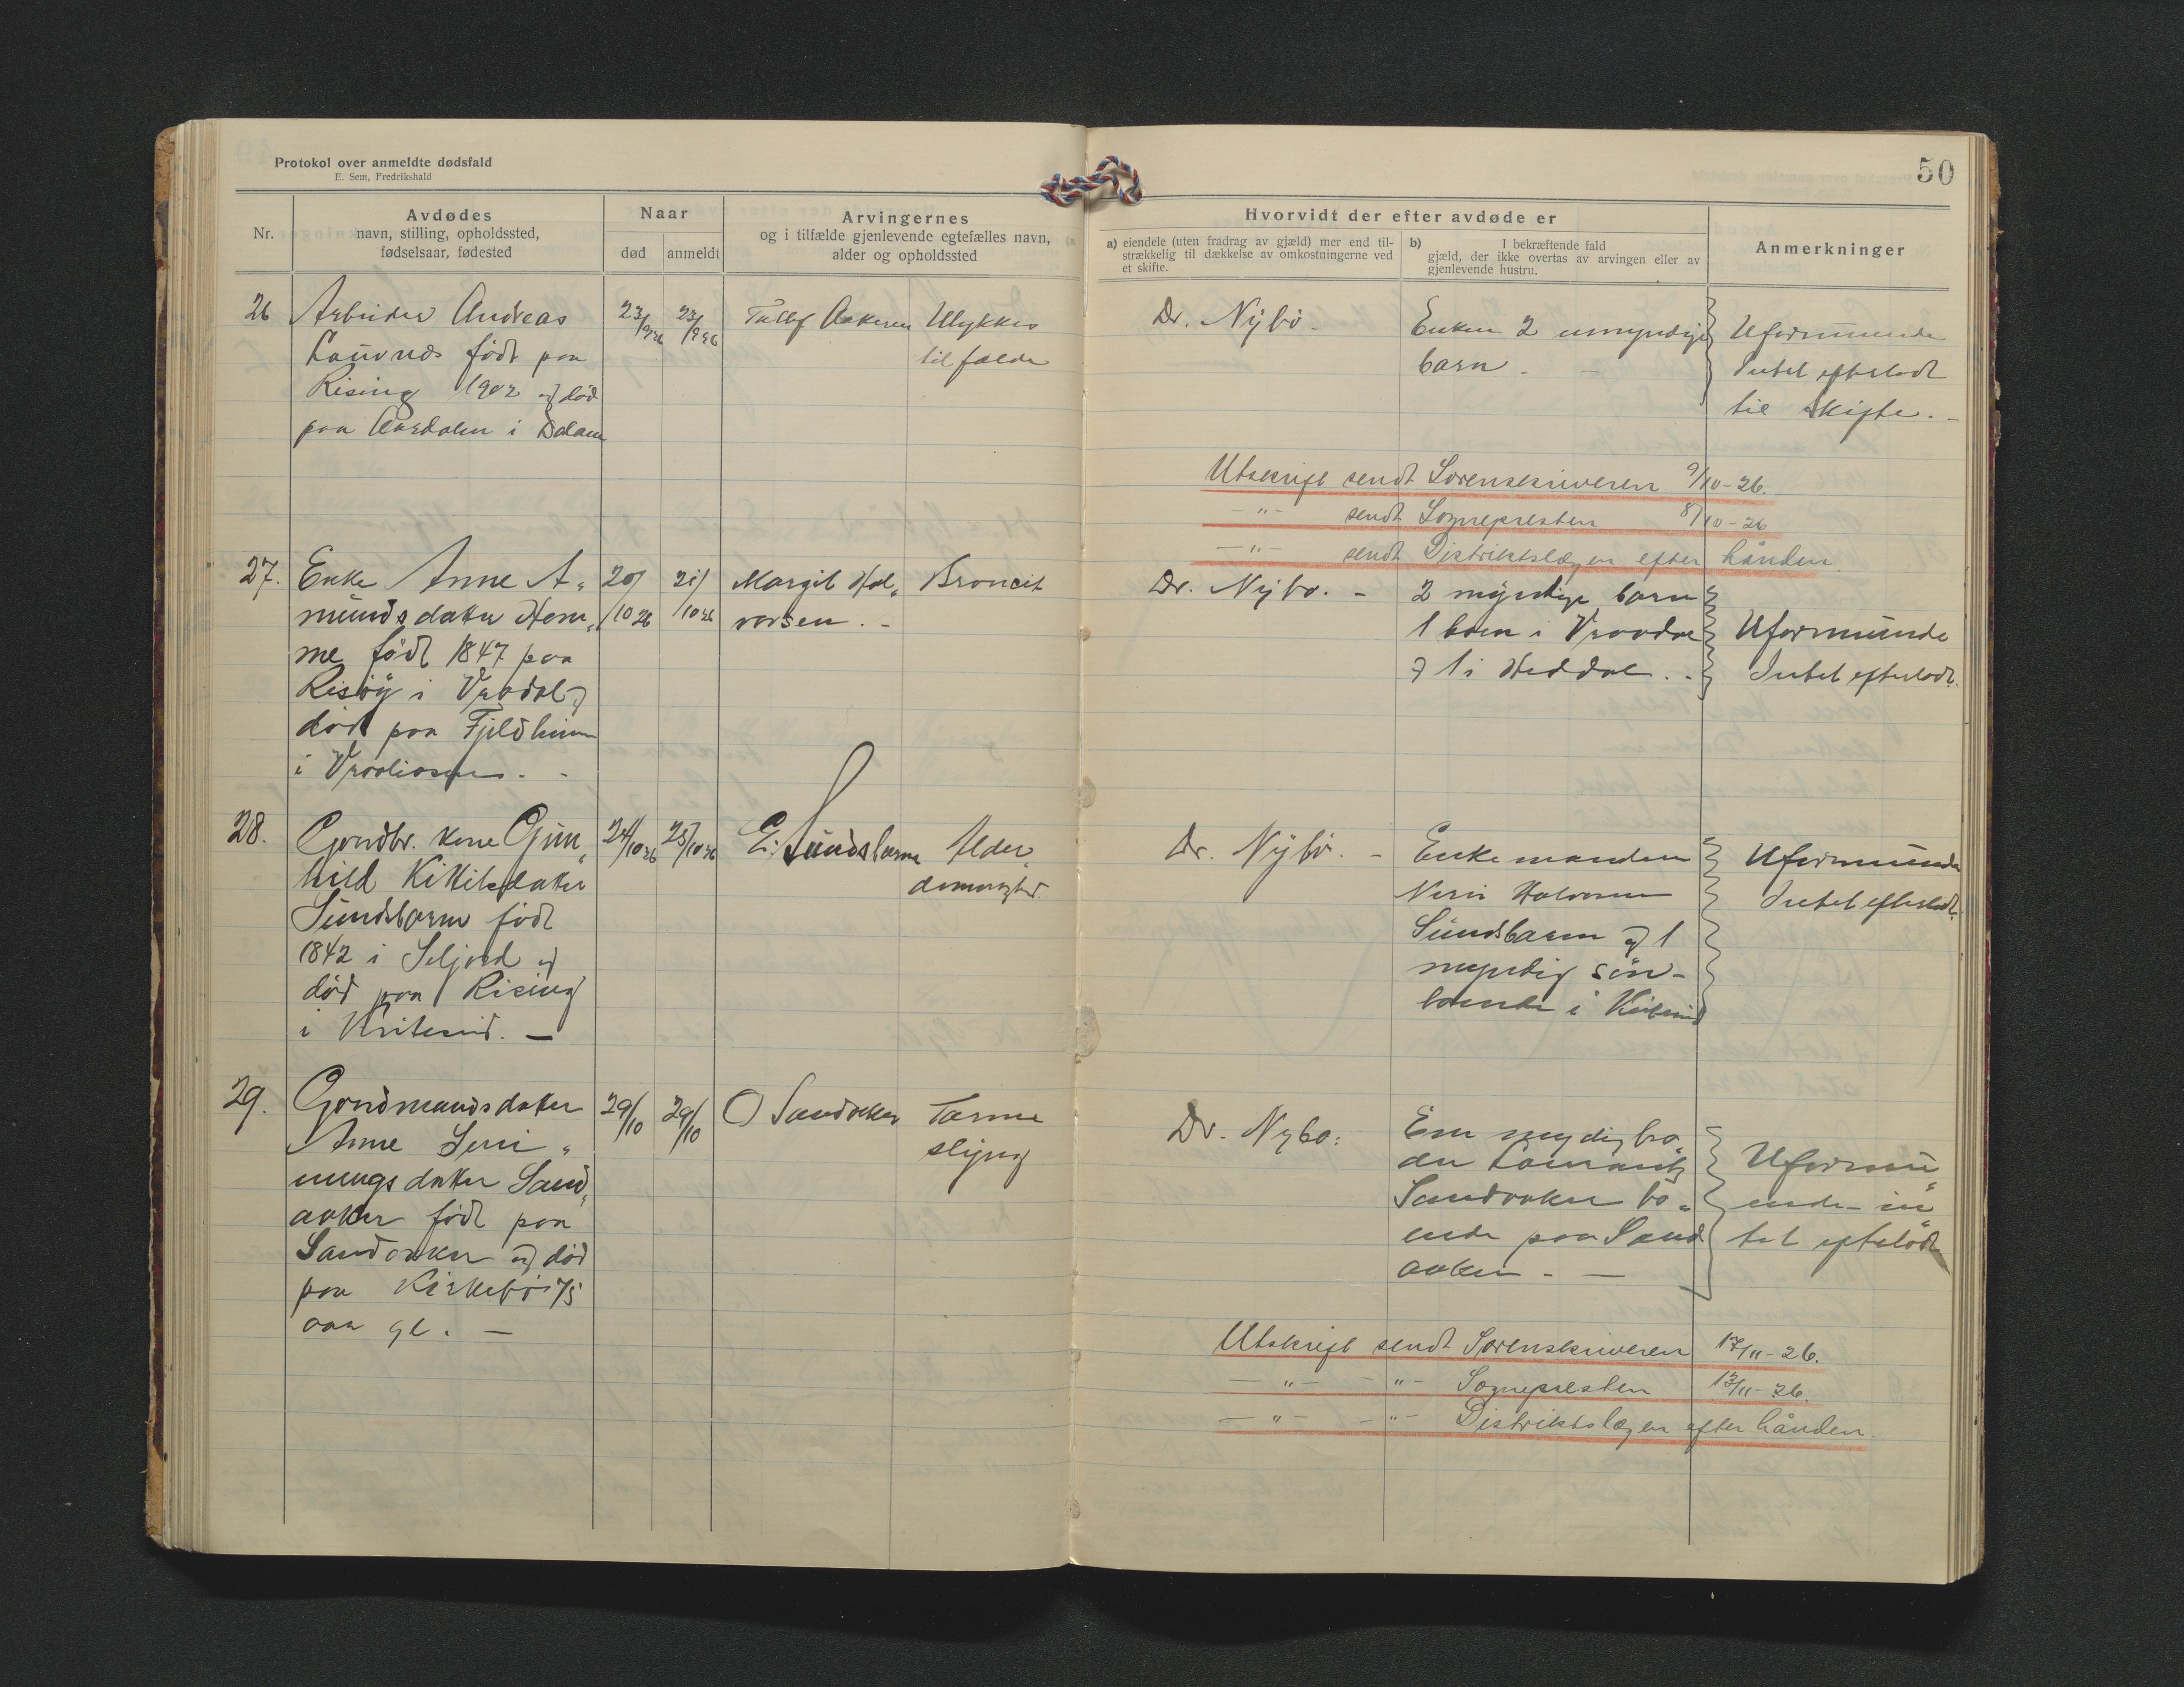 Protokol over anmeldte dødsfald
E. Sem, Fredrikshald
50
Nr.
Avdødes
navn, stilling, opholdssted,
fødselsaar, fødested
Naar
død
anmeldt
Arvingernes
og i tilfælde gjenlevende egtefælles navn,
alder og opholdssted
Hvorvidt der efter avdøde er
a) eiendele (uten fradrag av gjæld) mer end til-
strækkelig til dækkelse av omkostningerne ved
et skifte.
b) I bekræftende fald
gjæld, der ikke overtas av arvingen eller av
gjenlevende hustru.
Anmerkninger
26 Arbeider Andreas
født paa
Rising 1902 og död
paa i Dalane
23/9 26
23/9 26
Ulykkes
tilfælde
Dr. Nybö -
Enken 2 umyndige
barn -
Uformuende
Intet efterladt
til skifte. -
Utskrift sendt Sorenskriveren 9/10-26.
-"- sendt Sognepresten 8/10-26
-"- sendt Distriktslægen efter hånden.
27. Enke Anne A„
mundsdatter Hem„
me födt 1847 paa
i Vradal og
död paa Fjeldheim
i Vraaliosen. -
20/10 26
21/10 26
Margit Hal„
vorsen. -
Broncit
Dr. Nybo. -
2 myndige barn
1 boen i Vraadal
og 1 i Heddal. -
Uformuende
Intet efterladt.
28. Gardbr. kone Gun„
hild Kittilsdatter
Sundsbarm födt
1842 i Seljord og
död paa Rising
i Kviteseid. -
24/10 26
25/10 26
E. Sundsbarm
Alder„
domsvaghed.
Dr. Nybö. -
Enkemanden
Halvorsen
Sundsbarm og 1
myndig sön -
boende i Kviteseid
Uformuende
Intet efterladt.
29. Gardmandsdatter
Anne
datter Sand„
aaker födt paa
Sandaaker og död
paa Kirkebö 75
aar gl. -
29/10
29/10
O Sandaaker
Tarm
slyng
Dr. Nybo:
En myndig bro„
der Lavrants
Sandaaker bo„
ende paa Sand
aaker - -
Uformu„
ende - in„
tet efterladt
Utskrift sendt Sorenskriveren 17/11-26.
-"- -"- Sognepresten 13/11-26.
-"- -"- Distriktslægen efter hånden.